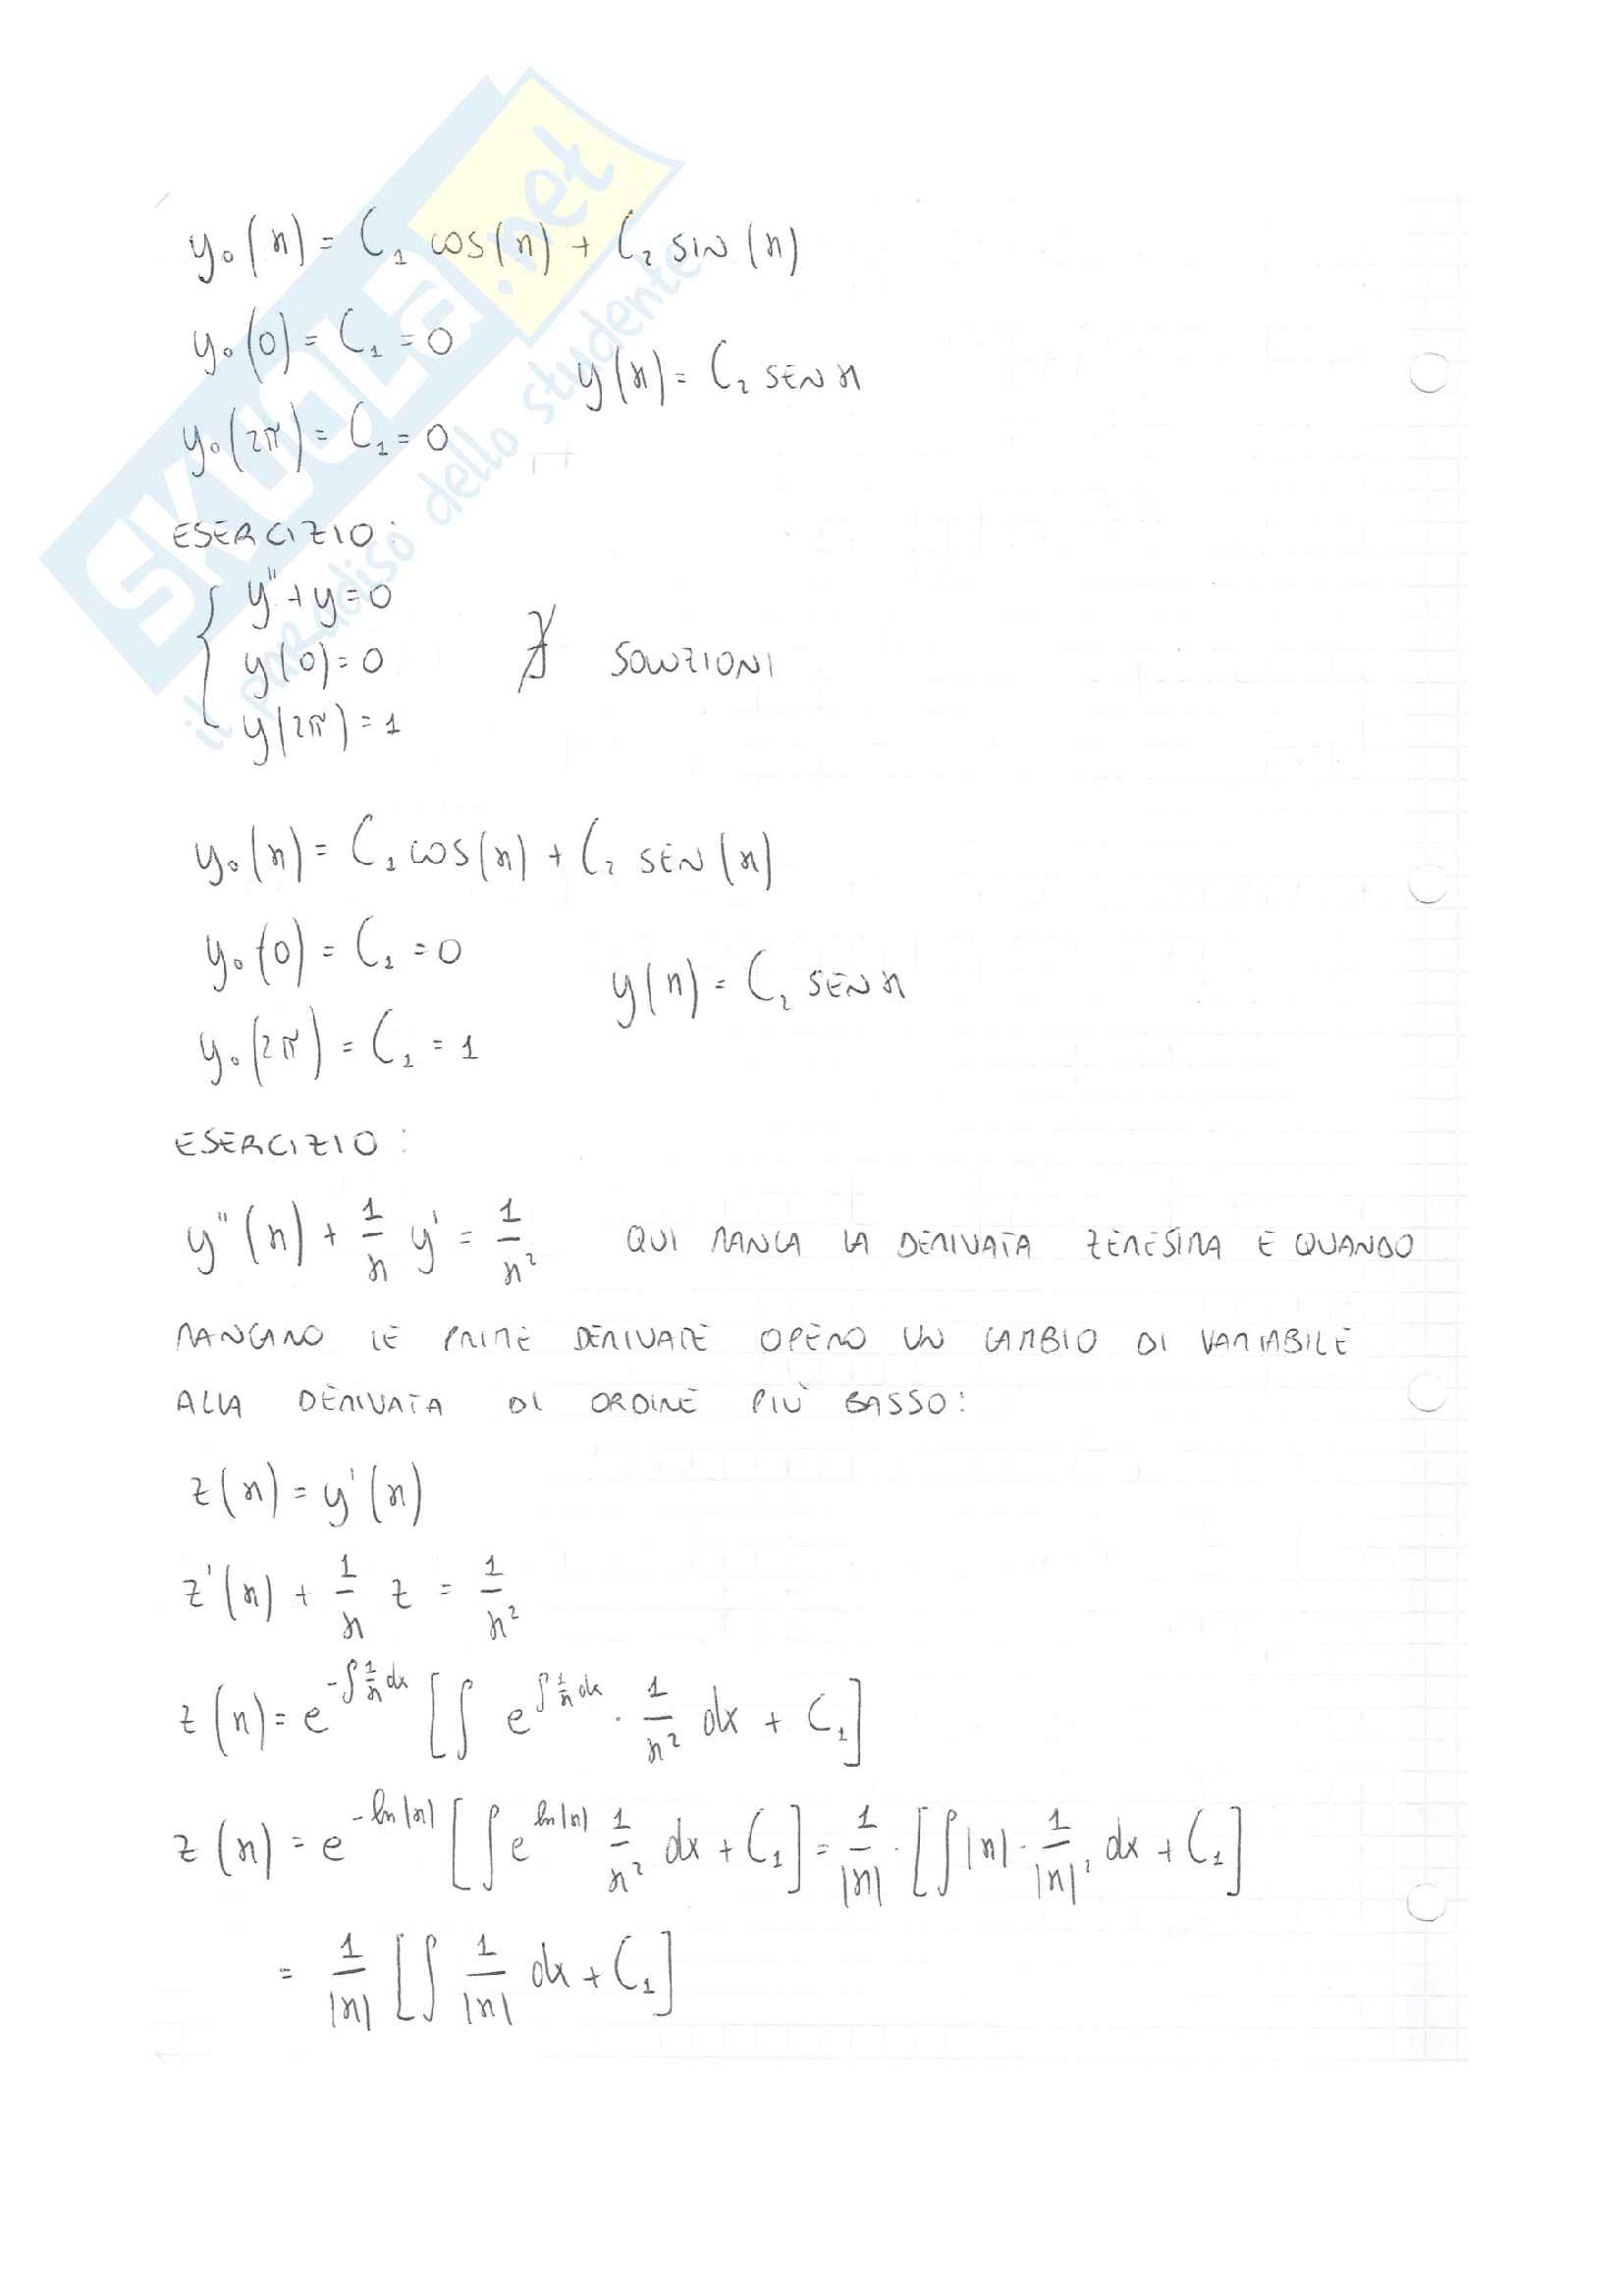 y₀(x) = C₁ cos(x) + C₂ sin(x)
y₀(0) = C₁ = 0
y(x) = C₂ sen x
y₀(2π) = C₁ = 0
ESERCIZIO:
y'' + y = 0
y(0) = 0
∄ SOLUZIONI
y(2π) = 1
y₀(x) = C₁ cos(x) + C₂ sen(x)
y₀(0) = C₁ = 0
y(x) = C₂ sen x
y₀(2π) = C₁ = 1
ESERCIZIO:
y''(x) + 1/x y' = 1/x² QUI MANCA LA DERIVATA ZERESIMA E QUANDO
MANCANO LE PRIME DERIVATE OPERO UN CAMBIO DI VARIABILE
ALLA DERIVATA DI ORDINE PIÙ BASSO:
z(x) = y'(x)
z'(x) + 1/x z = 1/x²
z(x) = e^(-∫ 1/x dx) [∫ e^(∫ 1/x dx) · 1/x² dx + C₁]
z(x) = e^(-ln|x|) [∫ e^(ln|x|) 1/x² dx + C₁] = 1/|x| · [∫ |x| · 1/|x|² dx + C₁]
= 1/|x| [∫ 1/|x| dx + C₁]
SKUOLA.net
il paradiso dello studente